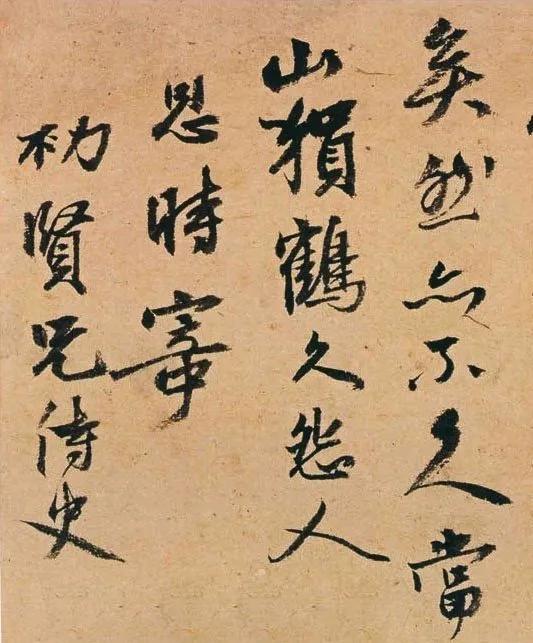 矣然亦不久當
山猿鶴久怨人
思時宰
賢兄侍史